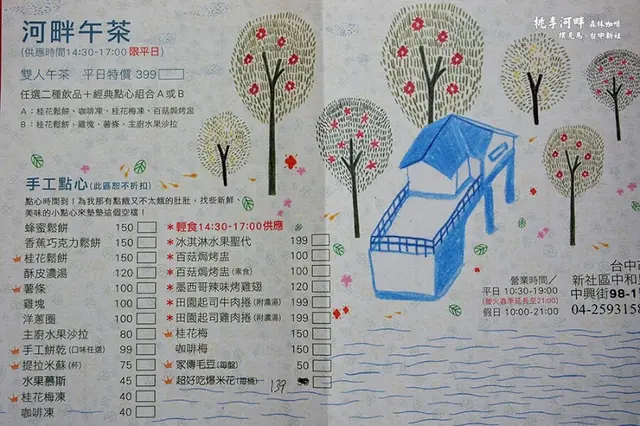 河畔午茶
(供應時間14:30-17:00 限平日)
雙人午茶 平日特價 399
任選二種飲品＋經典點心組合A或B
A：桂花鬆餅、咖啡凍、桂花梅凍、百菇焗烤盅
B：桂花鬆餅、雞塊、薯條、主廚水果沙拉
手工點心(此區恕不折扣)
點心時間到！為我那有點餓又不太餓的肚肚，找些新鮮、
美味的小點心來墊墊這個空檔！
蜂蜜鬆餅 150
香蕉巧克力鬆餅 150
桂花鬆餅 150
酥皮濃湯 120
薯條 100
雞塊 100
洋蔥圈 100
主廚水果沙拉 80
手工餅乾(口味任選) 99
提拉米蘇(杯) 75
水果慕斯 45
桂花梅凍 40
咖啡凍 40
*輕食14:30-17:00供應
*冰淇淋水果聖代 199
*百菇焗烤盅 100
*百菇焗烤盅(素食) 100
*墨西哥辣味烤雞翅 120
*田園起司牛肉捲(附濃湯) 199
*田園起司雞肉捲(附濃湯) 199
桂花梅 150
咖啡梅 150
家傳毛豆(每盤) 50
超好吃爆米花(柑桶) 139
桃李河畔 森林咖啡
撲克馬。台中新社
營業時間／
平日 10:30-19:00
(螢火蟲季延長至21:00)
假日 10:00-21:00
台中市
新社區中和里
中興街98-1
04-2593158